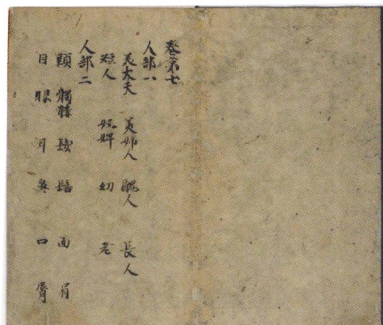 卷第七
人部八
美丈夫 美婦人 醜人 長人
短人 奴婢 幼 老
人部二
頭 髑髏 髮 髻 面 眉
目 眼 耳 鼻 口 脣